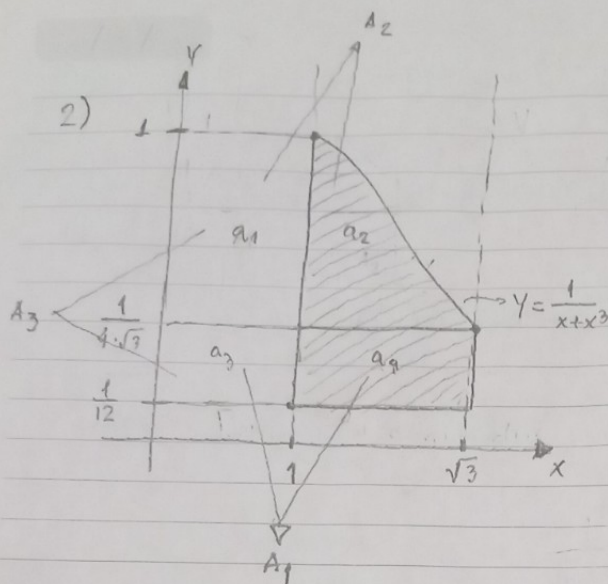 A2
Y
2)
1
a1
a2
A3
1
4·√3
Y = 1
x+x³
a3
a4
1
12
1
√3
x
A1